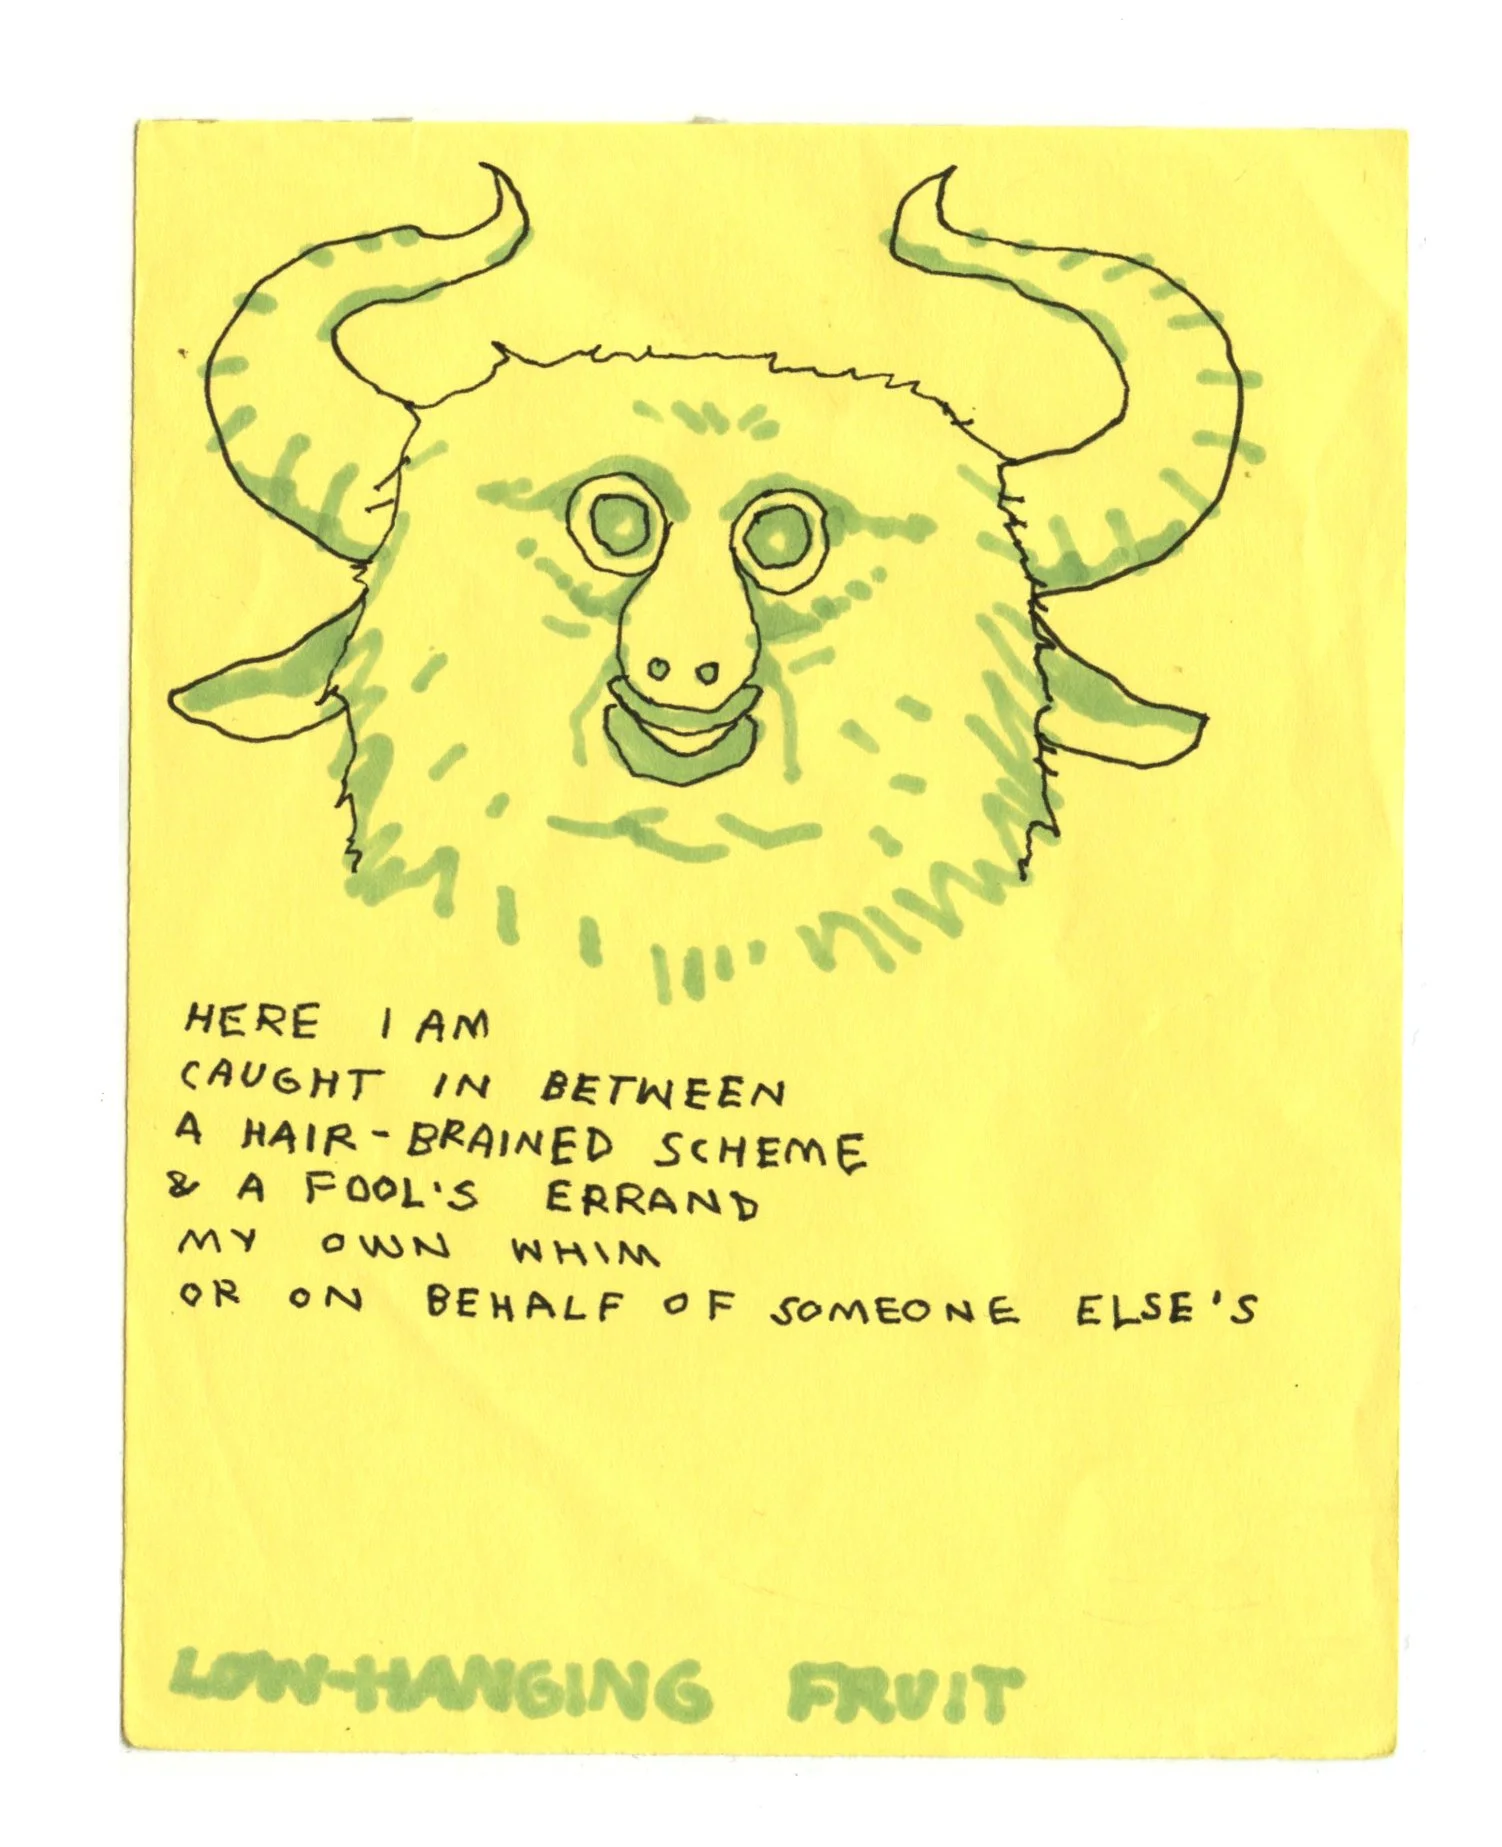 HERE I AM
CAUGHT IN BETWEEN
A HAIR-BRAINED SCHEME
& A FOOL'S ERRAND
MY OWN WHIM
OR ON BEHALF OF SOMEONE ELSE'S
LOW-HANGING FRUIT